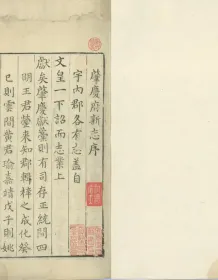 肇慶府新志序
宇內郡各有志蓋自
文皇一下詔而志業上
獻矣肇慶獻藁則有司存正統間四
明王君瑩來知郡輯梓之成化癸
巳則雲間黃君瑜嘉靖戊子則姚